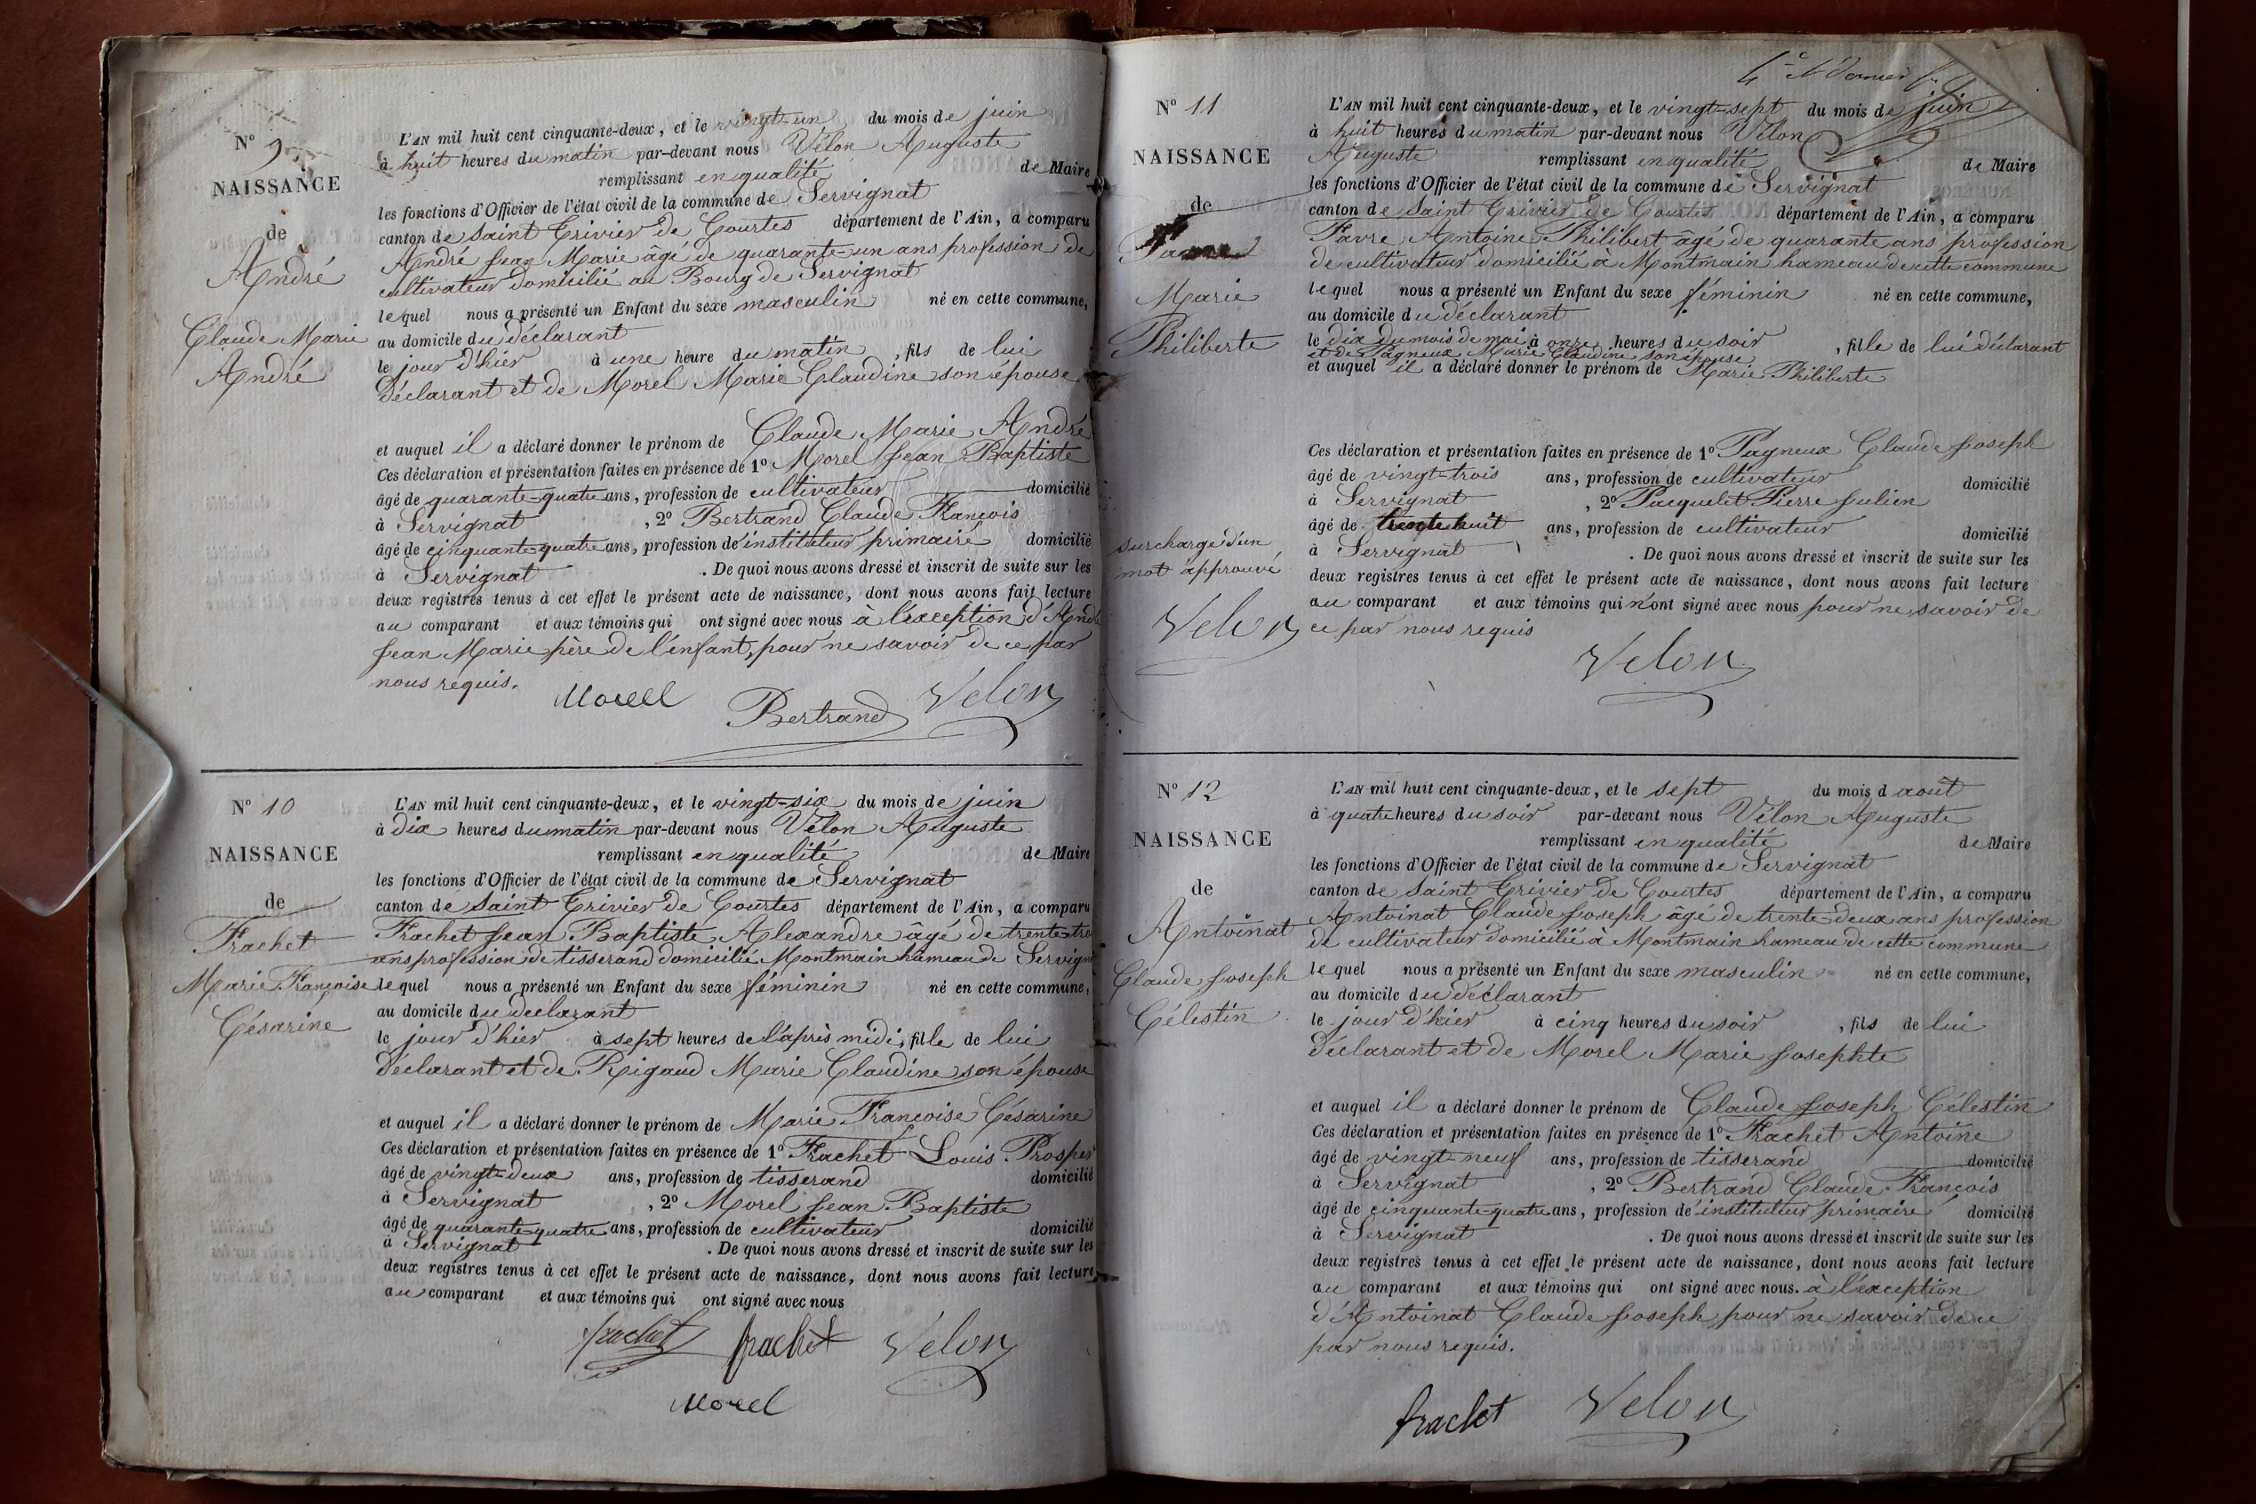 N° 9
NAISSANCE
de
André
Claude Marie
André
L'AN mil huit cent cinquante-deux, et le vingt-un du mois de juin
à huit heures du matin par-devant nous Vélon Auguste
remplissant en qualité de Maire
les fonctions d'Officier de l'état civil de la commune de Servignat
canton de Saint Trivier de Courtes département de l'Ain, a comparu
André Jean Marie âgé de quarante-un ans profession de
cultivateur domicilié au Bourg de Servignat
lequel nous a présenté un Enfant du sexe masculin né en cette commune,
au domicile du déclarant
le jour d'hier à une heure du matin, fils de lui
déclarant et de Morel Marie Claudine son épouse
et auquel il a déclaré donner le prénom de Claude Marie André
Ces déclaration et présentation faites en présence de 1° Morel Jean Baptiste
âgé de quarante-quatre ans, profession de cultivateur domicilié
à Servignat, 2° Bertrand Claude François
âgé de cinquante-quatre ans, profession de instituteur primaire domicilié
à Servignat. De quoi nous avons dressé et inscrit de suite sur les
deux registres tenus à cet effet le présent acte de naissance, dont nous avons fait lecture
au comparant et aux témoins qui ont signé avec nous à l'exception d'André
Jean Marie père de l'enfant, pour ne savoir de ce par
nous requis.
Morel Bertrand Velon
N° 10
NAISSANCE
de
Frachet
Marie Françoise
Césarine
L'AN mil huit cent cinquante-deux, et le vingt-six du mois de juin
à dix heures du matin par-devant nous Vélon Auguste
remplissant en qualité de Maire
les fonctions d'Officier de l'état civil de la commune de Servignat
canton de Saint Trivier de Courtes département de l'Ain, a comparu
Frachet Jean Baptiste Alexandre âgé de trente-tro
ans profession de tisserand domicilié Montmain hameau de Servigna
lequel nous a présenté un Enfant du sexe féminin né en cette commune,
au domicile du declarant
le jour d'hier à sept heures de l'après midi, fille de lui
déclarant et de Rigaud Marie Claudine son épouse
et auquel il a déclaré donner le prénom de Marie Françoise Césarine
Ces déclaration et présentation faites en présence de 1° Frachet Louis Prosper
âgé de vingt-deux ans, profession de tisserand domicilié
à Servignat, 2° Morel Jean Baptiste
âgé de quarante-quatre ans, profession de cultivateur domicilié
à Servignat. De quoi nous avons dressé et inscrit de suite sur les
deux registres tenus à cet effet le présent acte de naissance, dont nous avons fait lecture
au comparant et aux témoins qui ont signé avec nous
frachet frachet Vélon
Morel
N° 11
NAISSANCE
de
Marie
Philiberte
surcharge d'un
mot approuvé
Velon
L'AN mil huit cent cinquante-deux, et le vingt-sept du mois de juin
à huit heures du matin par-devant nous Vélon
Auguste remplissant en qualité de Maire
les fonctions d'Officier de l'état civil de la commune de Servignat
canton de Saint Trivier de Courtes département de l'Ain, a comparu
Favre Antoine Philibert âgé de quarante ans profession
de cultivateur domicilié à Montmain hameau de cette commune
lequel nous a présenté un Enfant du sexe féminin né en cette commune,
au domicile du déclarant
le dix du mois de mai à onze heures du soir, fille de lui déclarant
et de Pagneux Marie Claudine son épouse
et auquel il a déclaré donner le prénom de Marie Philiberte
Ces déclaration et présentation faites en présence de 1° Pagneux Claude Joseph
âgé de vingt-trois ans, profession de cultivateur domicilié
à Servignat, 2° Pacquelet Pierre Julien
âgé de trente huit ans, profession de cultivateur domicilié
à Servignat. De quoi nous avons dressé et inscrit de suite sur les
deux registres tenus à cet effet le présent acte de naissance, dont nous avons fait lecture
au comparant et aux témoins qui n'ont signé avec nous pour ne savoir de
ce par nous requis
Velon
N° 12
NAISSANCE
de
Antoinat
Claude Joseph
Célestin
L'AN mil huit cent cinquante-deux, et le sept du mois d'août
à quatre heures du soir par-devant nous Vélon Auguste
remplissant en qualité de Maire
les fonctions d'Officier de l'état civil de la commune de Servignat
canton de Saint Trivier de Courtes département de l'Ain, a comparu
Antoinat Claude Joseph âgé de trente-deux ans profession
de cultivateur domicilié à Montmain hameau de cette commune
lequel nous a présenté un Enfant du sexe masculin né en cette commune,
au domicile du déclarant
le jour d'hier à cinq heures du soir, fils de lui
déclarant et de Morel Marie Josephte
et auquel il a déclaré donner le prénom de Claude Joseph Célestin
Ces déclaration et présentation faites en présence de 1° Frachet Antoine
âgé de vingt-neuf ans, profession de tisserand domicilié
à Servignat, 2° Bertrand Claude François
âgé de cinquante-quatre ans, profession de instituteur primaire domicilié
à Servignat. De quoi nous avons dressé et inscrit de suite sur les
deux registres tenus à cet effet le présent acte de naissance, dont nous avons fait lecture
au comparant et aux témoins qui ont signé avec nous. à l'exception
d'Antoinat Claude Joseph pour ne savoir de ce
par nous requis.
frachet Velon